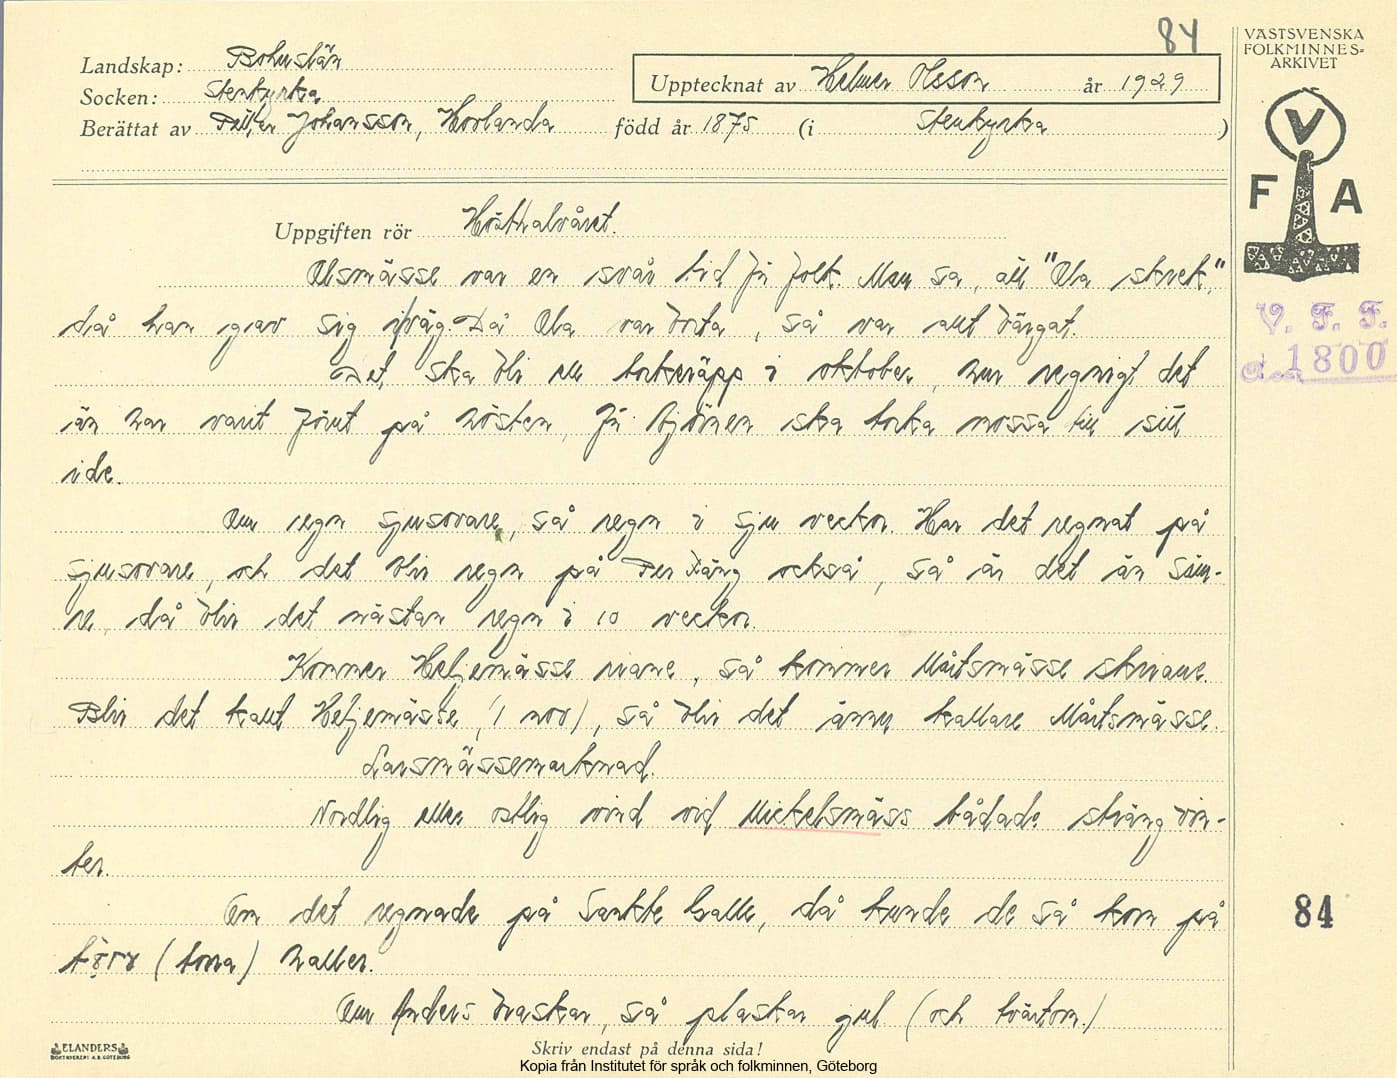 84
VÄSTSVENSKA
FOLKMINNES-
ARKIVET
Landskap: Bohuslän
Socken: Stenkyrka
Upptecknat av Helmer Olsson år 1929
Berättat av Johansson, Hovlanda född år 1875 (i Stenkyrka)
V
F A
Uppgiften rör Hösthalvåret.
Olsmässe var en svår tid fü folk. Man sa, att "Ola skrek",
då han gav sig iväg. Då Ola var borta, så var allt bärgat.
Det ska bli en torkeräpp i oktober, hur regnigt det
än har varit förut på hösten, fü björnen ska torka mossa till sitt
ide.
Om regn sjusovare, så regn i sju veckor. Har det regnat på
sjusovare, och det blir regn på Per Fäng också, så är det än säm-
re, då blir det nästan regn i 10 veckor.
Kommer Heljemässe riane, så kommer Mårtsmässe skriane.
Blir det kallt Heljemässe (1 nov), så blir det ännu kallare Mårtsmässe.
Larsmässemarknad.
Nordlig eller ostlig vind vid Mickelsmäss bådade sträng vin-
ter.
Om det regnade på Sankte Galle, då kunde de så korn på
(torra) haller.
Om Anders braskar, så plaskar jul (och tvärtom.)
V. F. F.
1800
84
ELANDERS
BOKTRYCKERI A.B. GÖTEBORG
Skriv endast på denna sida!
Kopia från Institutet för språk och folkminnen, Göteborg